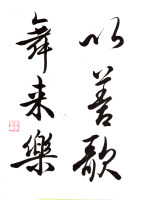 以善歌
舞来樂